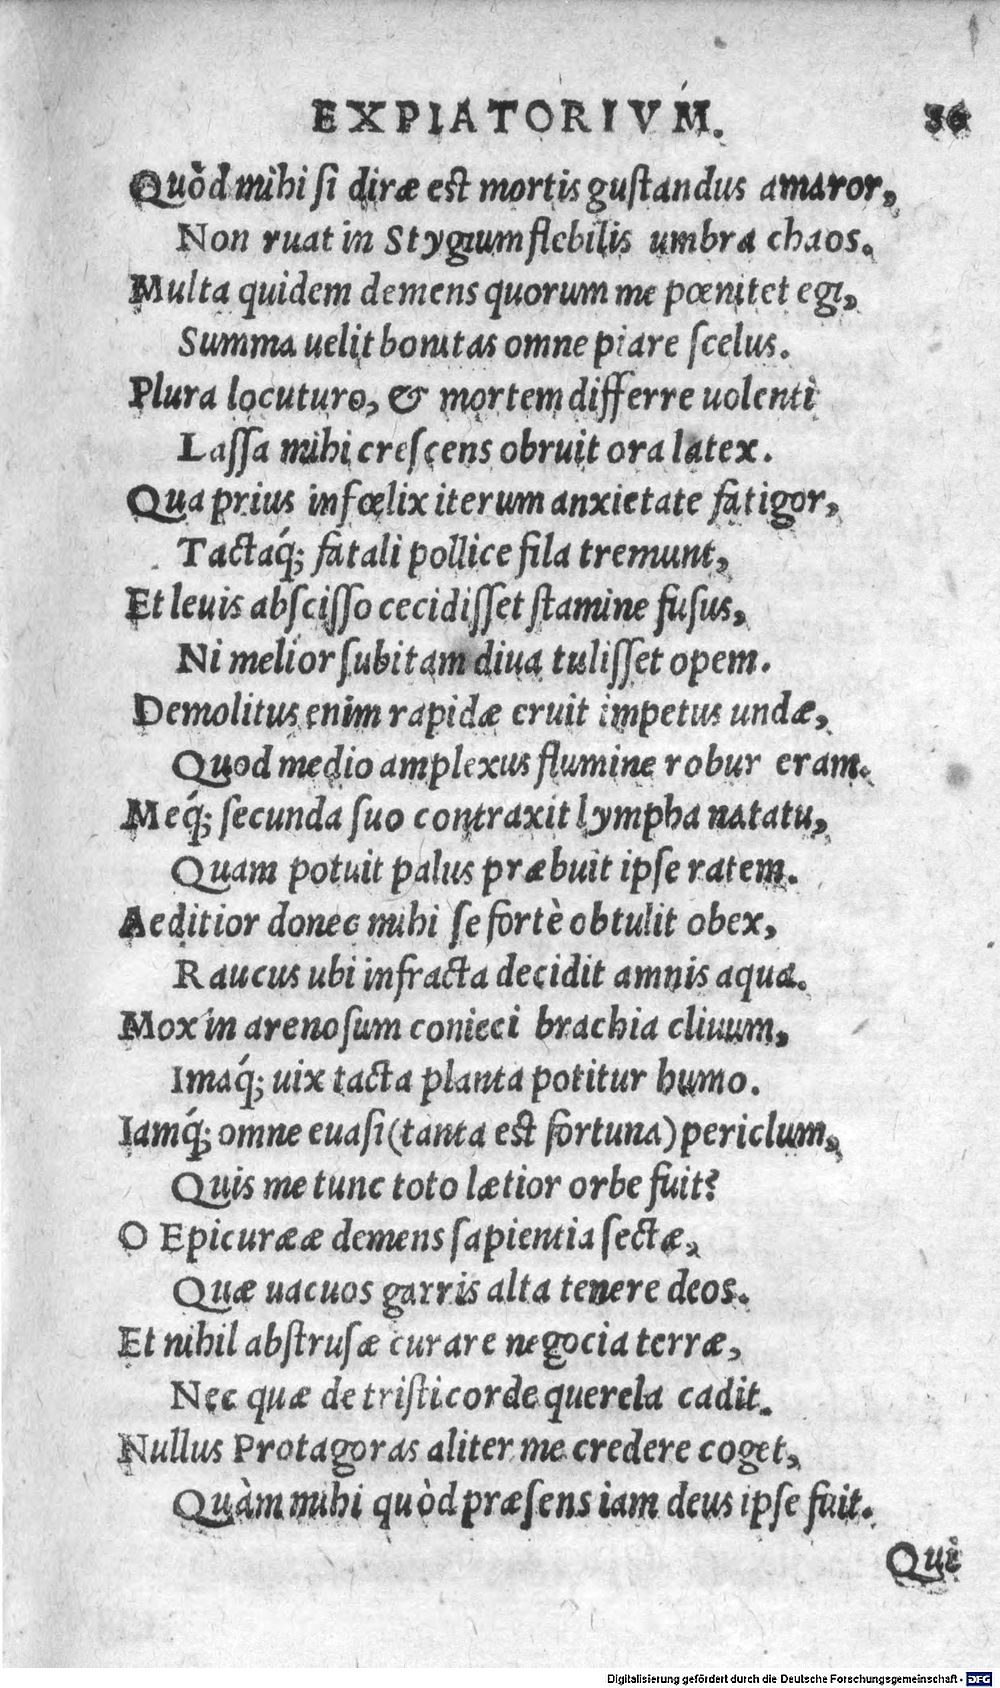 EXPIATORIVM. 36
Quòd mihi ſi diræ est mortis gustandus amaror,
Non ruat in Stygium flebilis umbra chaos.
Multa quidem demens quorum me pœnitet egi,
Summa uelit bonitas omne piare ſcelus.
Plura locuturo, & mortem differre uolenti
Laſſa mihi creſcens obruit ora latex.
Qua prius infœlix iterum anxietate fatigor,
Tactaq́; fatali pollice fila tremunt,
Et leuis abſciſſo cecidiſſet stamine fuſus,
Ni melior ſubitam diua tuliſſet opem.
Demolitus enim rapidæ eruit impetus undæ,
Quod medio amplexus flumine robur eram.
Meq́; ſecunda ſuo contraxit lympha natatu,
Quam potuit palus præbuit ipſe ratem.
Aeditior donec mihi ſe fortè obtulit obex,
Raucus ubi infracta decidit amnis aqua.
Mox in arenoſum conieci brachia cliuum,
Imaq́; uix tacta planta potitur humo.
Iamq́; omne euaſi (tanta est fortuna) periclum,
Quis me tunc toto lætior orbe fuit?
O Epicurææ demens ſapientia ſectæ,
Quæ uacuos garris alta tenere deos.
Et nihil abstruſæ curare negocia terræ,
Nec quæ de tristi corde querela cadit.
Nullus Protagoras aliter me credere coget,
Quàm mihi quòd præſens iam deus ipſe fuit.
Qui
Digitalisierung gefördert durch die Deutsche Forschungsgemeinschaft - DFG